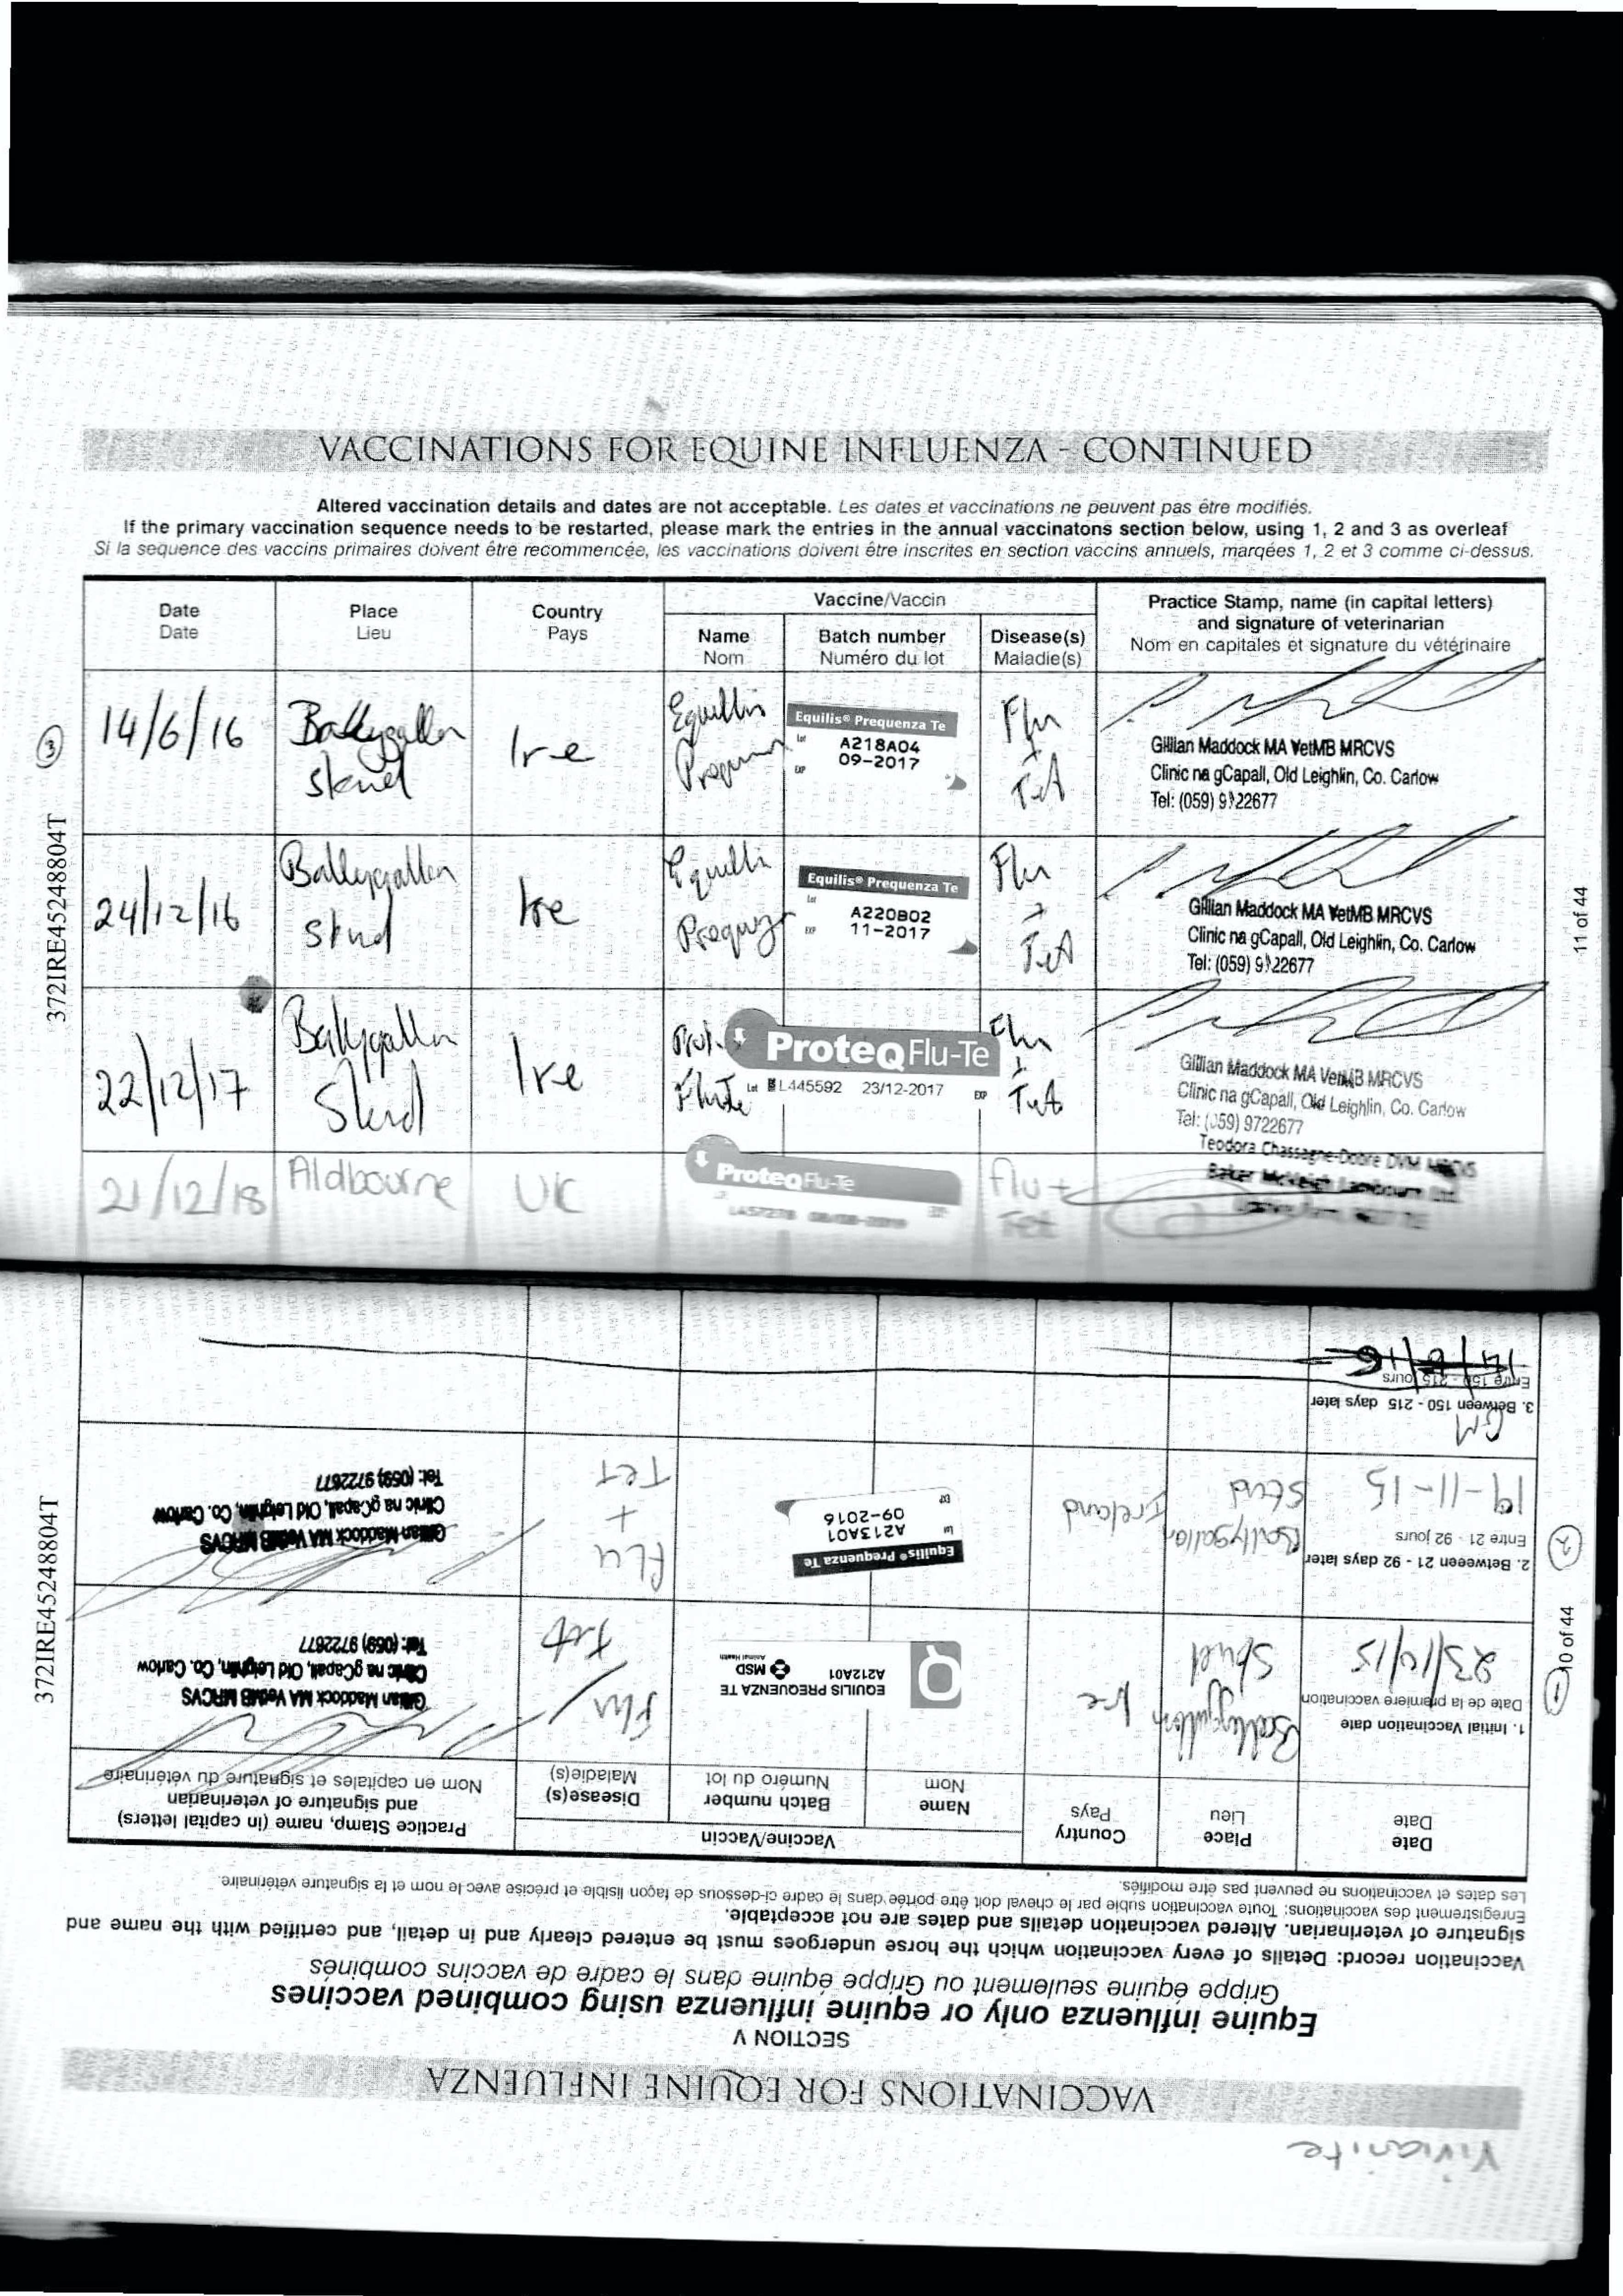 VACCINATIONS FOR EQUINE INFLUENZA - CONTINUED
Altered vaccination details and dates are not acceptable. Les dates et vaccinations ne peuvent pas être modifiés.
If the primary vaccination sequence needs to be restarted, please mark the entries in the annual vaccinatons section below, using 1, 2 and 3 as overleaf
Si la sequence des vaccins primaires doivent être recommencée, les vaccinations doivent être inscrites en section vaccins annuels, marqées 1, 2 et 3 comme ci-dessus.
Date
Date
Place
Lieu
Country
Pays
Vaccine/Vaccin
Name
Nom
Batch number
Numéro du lot
Disease(s)
Maladie(s)
Practice Stamp, name (in capital letters)
and signature of veterinarian
Nom en capitales et signature du vétérinaire
3
14/6/16
Ballygallon
Stud
Ire
Equilis® Prequenza Te
Lot A218A04
EXP 09-2017
Flu
+
Tet
Gillian Maddock MA VetMB MRCVS
Clinic na gCapall, Old Leighlin, Co. Carlow
Tel: (059) 9722677
24/12/16
Ballygallon
Stud
Ire
Equilis® Prequenza Te
Lot A220B02
EXP 11-2017
Flu
+
Tet
Gillian Maddock MA VetMB MRCVS
Clinic na gCapall, Old Leighlin, Co. Carlow
Tel: (059) 9722677
22/12/17
Ballygallon
Stud
Ire
ProteqFlu-Te
Lot L445592 23/12-2017 EXP
Flu
+
Tet
Gillian Maddock MA VetMB MRCVS
Clinic na gCapall, Old Leighlin, Co. Carlow
Tel: (059) 9722677
21/12/18
Aldbourne
UK
ProteqFlu-Te
Flu +
Tet
Teodora Chassagne-Dobre DVM MRCVS
Baker McVeigh Lambourn Ltd.
372IRE45248804T
11 of 44
Vivianite
VACCINATIONS FOR EQUINE INFLUENZA
SECTION V
Equine influenza only or equine influenza using combined vaccines
Grippe équine seulement ou Grippe équine dans le cadre de vaccins combinés
Vaccination record: Details of every vaccination which the horse undergoes must be entered clearly and in detail, and certified with the name and
signature of veterinarian. Altered vaccination details and dates are not acceptable.
Enregistrement des vaccinations: Toute vaccination subie par le cheval doit être portée dans le cadre ci-dessous de façon lisible et précise avec le nom et la signature vétérinaire.
Les dates et vaccinations ne peuvent pas être modifiés.
Date
Date
Place
Lieu
Country
Pays
Vaccine/Vaccin
Name
Nom
Batch number
Numéro du lot
Disease(s)
Maladie(s)
Practice Stamp, name (in capital letters)
and signature of veterinarian
Nom en capitales et signature du vétérinaire
1
1. Initial Vaccination date
Date de la première vaccination
Ballygallon
Stud
Ire
EQUILIS PREQUENZA TE
A212A01
MSD
Animal Health
Flu/
Tet
Gillian Maddock MA VetMB MRCVS
Clinic na gCapall, Old Leighlin, Co. Carlow
Tel: (059) 9722677
2
2. Between 21 - 92 days later
Entre 21 - 92 jours
19-11-15
Ballygallon
Stud
Ireland
Equilis® Prequenza Te
Lot A213A01
EXP 09-2016
FLU
+
TET
Gillian Maddock MA VetMB MRCVS
Clinic na gCapall, Old Leighlin, Co. Carlow
Tel: (059) 9722677
GM
3. Between 150 - 215 days later
Entre 150 - 215 jours
372IRE45248804T
10 of 44